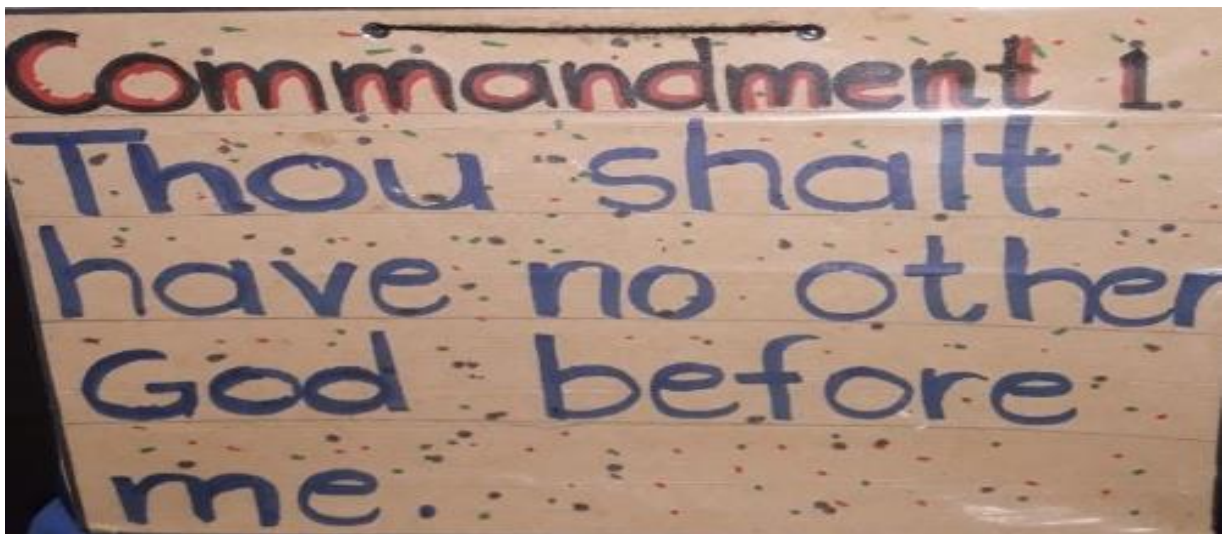 Commandment 1.
Thou shalt
have no other
God before
me.